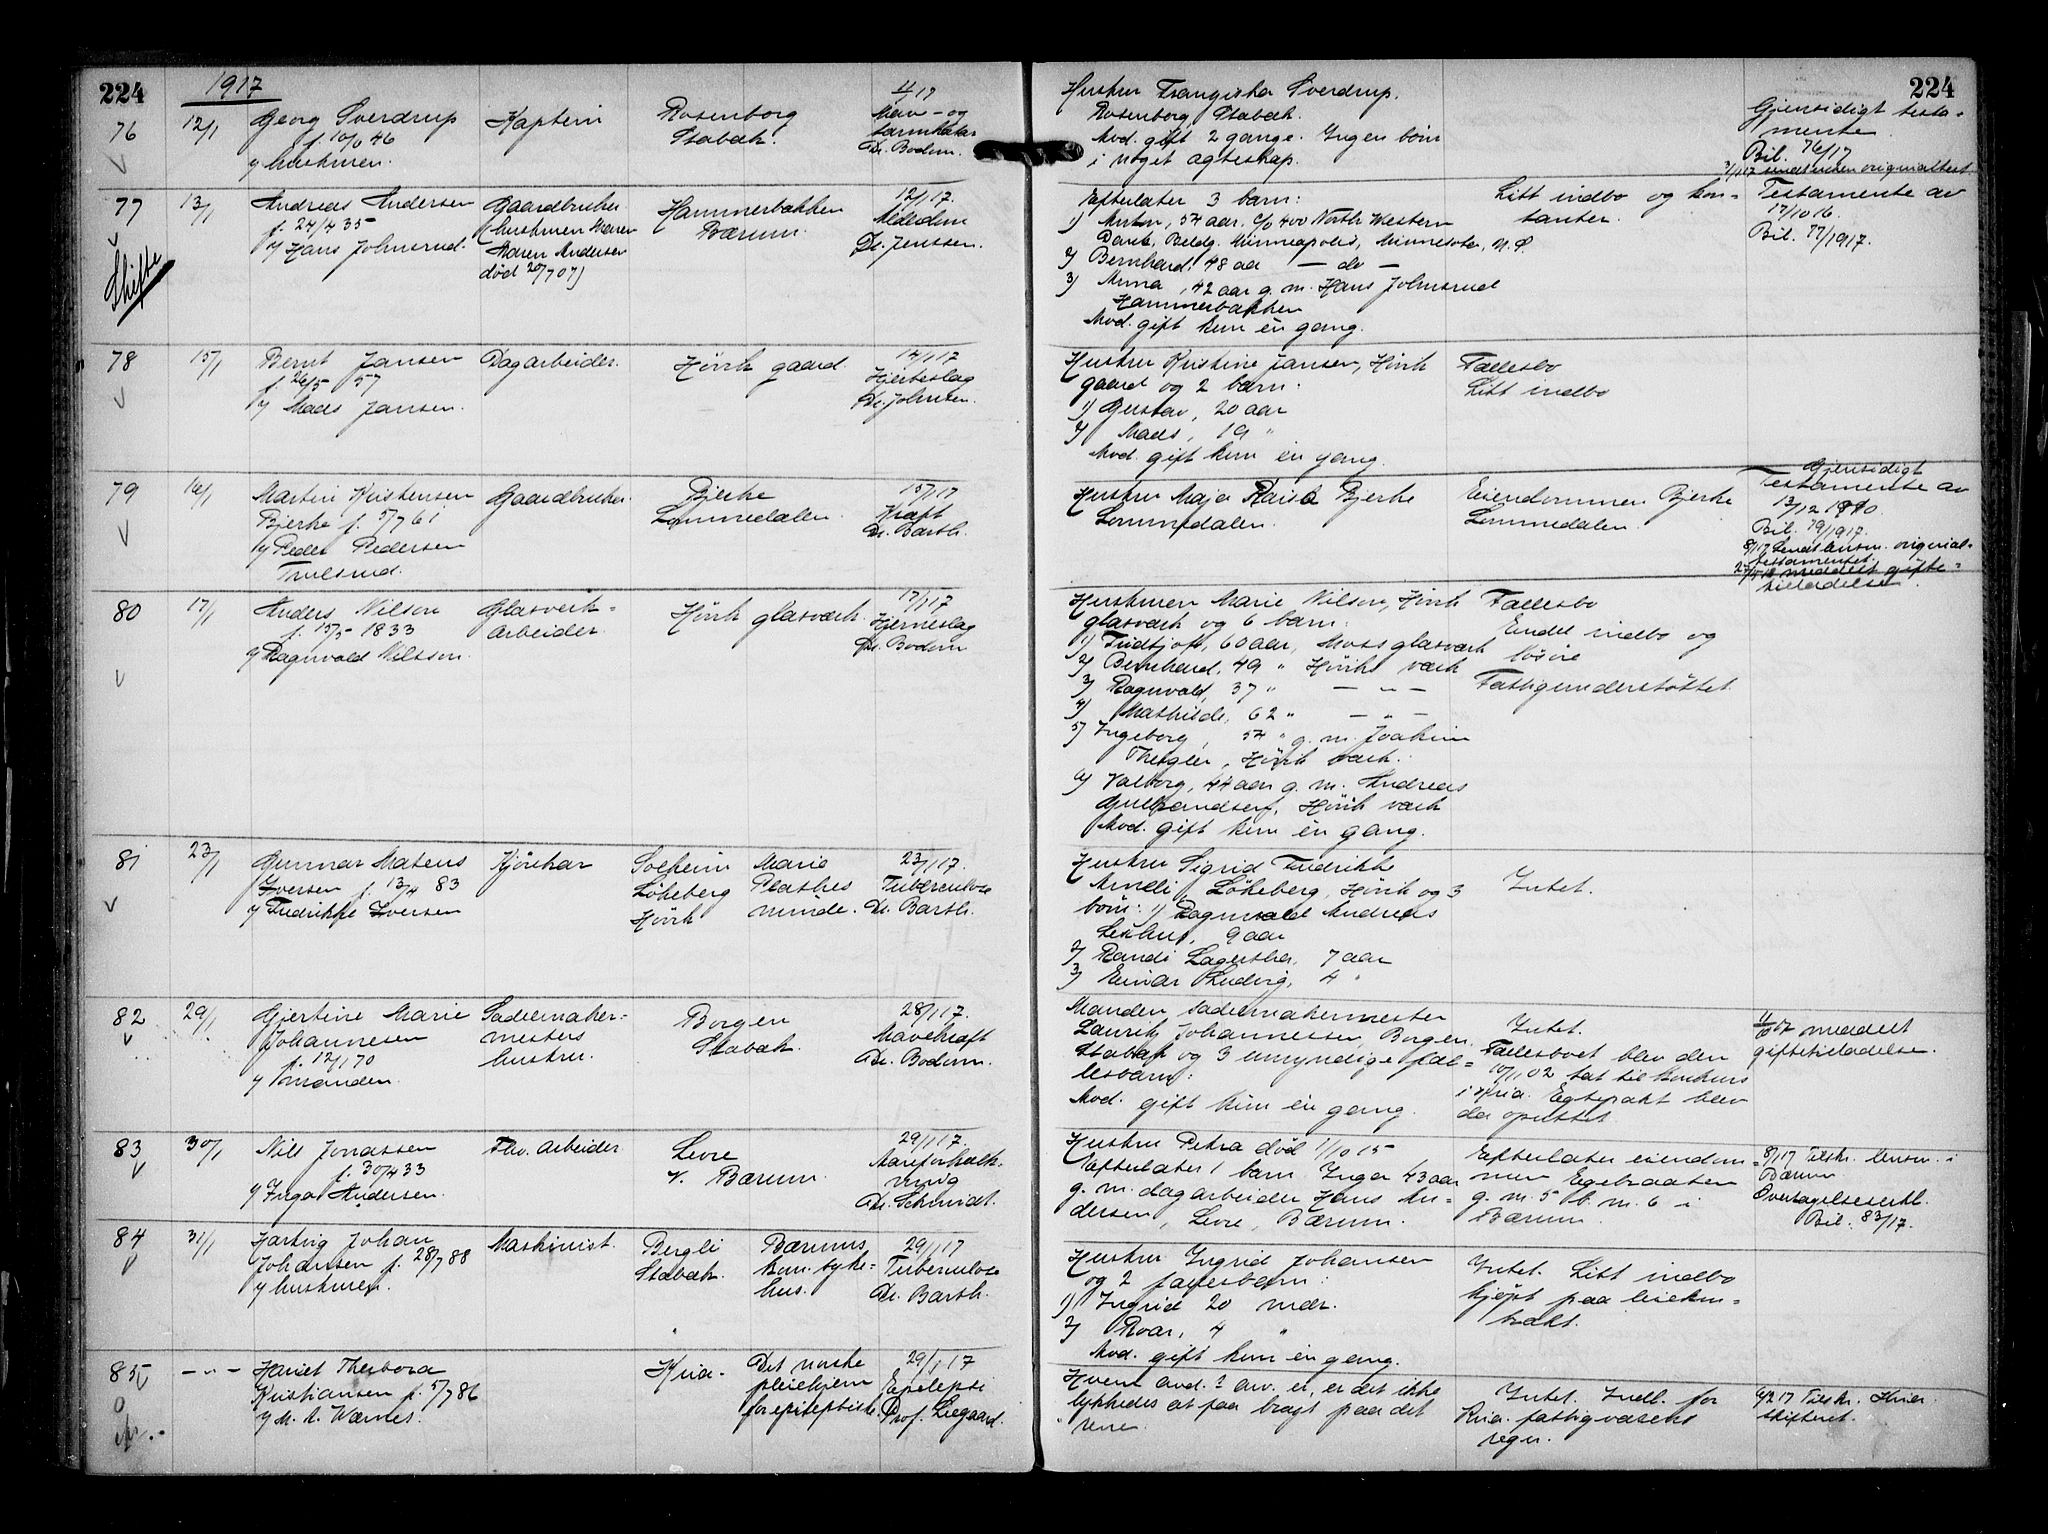 224
1917
224
76
12/1
Georg Sverdrup
f. 10/6 46
v/ hustruen.
Kaptein
Rosenborg
Stabæk.
11/1 17
Mave- og
tarmkatar
Dr. Bodom.
Hustru Frangiska Sverdrup,
Rosenborg, Stabæk.
Avd. gift 2 gange. Ingen barn
i noget ægteskap.
Gjensidigt testa-
mente.
Bil. 76/17
77
13/1
Skifte
Andreas Andersen
f. 24/4 35
v/ Hans Johnsrud.
Gaardbruker
(hustruen Karen
Maren Andersen
død 20/7 07)
Hammerbakken
Bærum.
12/1 17.
Alderdom
Dr. Jenssen.
Efterlater 3 barn:
1) Anton, 54 aar, c/o 400 North Western
Bank, Beldg. Minneapolis, Minnesota, U.S.
2) Bernhard, 48 aar — do —
3) Anna, 42 aar g. m. Hans Johnsrud
Hammerbakken
Avd. gift kun én gang.
Litt indbo og kon-
tanter.
Testamente av
17/10 16.
Bil. 77/1917.
78
15/1
Bernt Jansen
f. 26/5 57
v/ Mads Jansen.
Dagarbeider.
Høvik gaard.
14/1 17
Hjerteslag
Dr. Johnsen.
Hustru Kristine Jansen, Høvik
gaard og 2 barn:
1) Gustav, 20 aar
2) Mads, 19 "
Avd. gift kun én gang.
Fællesbo
Litt indbo
79
16/1
Martin Kristensen
Bjerke f. 5/7 61
v/ Peder Pedersen
Trulsrud.
Gaardbruker.
Bjerke
Lommedalen.
15/1 17
Kræft
Dr. Barth.
Hustru Maja Raisa Bjerke
Lommedalen.
Eiendommen Bjerke
Lommedalen.
Gjensidigt
Testamente av
13/12 1910.
Bil. 79/1917.
8/1 17 Sendt lensm. original-
testamentet.
meddelt gifte-
tilladelse.
80
17/1
Anders Nilson
f. 15/5 1833
v/ Ragnvald Nilsson.
Glasverk-
arbeider.
Høvik glasværk.
17/1 17
Hjerneslag
Dr. Bodom
Hustruen Marie Nilson, Høvik
glasværk og 6 barn:
1) Fridtjof, 60 aar, Moss glasværk
2) Bernhard, 49 " Høvik værk
3) Ragnvald, 37 " — " —
4) Mathilde, 62 " — " —
5) Ingeborg, 54 " g. m. Joakim
Thesgler, Høvik værk.
6) Valborg, 44 aar g. m. Andreas
Gulbrandsen, Høvik værk
Avd. gift kun én gang.
Fællesbo
Endel indbo og
løsøre
Fattigunderstøttet.
81
23/1
Gunnar Matens
Iversen f. 13/4 83
v/ Fredrikke Iversen
Kjørekar
Solheim
Løkeberg
Høvik
Marie
Plathes
minde.
23/1 17.
Tuberculose
Dr. Barth.
Hustru Sigrid Fredrikke
Arneli, Løkeberg, Høvik og 3
barn: 1) Ragnvald Andreas
9 aar
2) Randi Lagertha, 7 aar
3) Einar Ludvig, 4 "
Intet.
82
29/1
Gjertine Marie
Johannesen
f. 12/1 70
v/ manden.
Sadelmaker-
mesters
hustru.
Borgen
Stabæk.
28/1 17.
Mavekræft
Dr. Bodom.
Manden sadelmakermester
Lauritz Johannessen, Borgen,
Stabæk og 3 umyndige fæl-
lesbarn:
Avd. gift kun én gang.
Intet.
Fællesboet blev den
10/1 02 tat til konkurs
i Kria. Egtepakt blev
da oprettet.
meddelt
giftetilladelse.
83
30/1
Nils Jonassen
f. 30/4 33
v/ Inga Andersen.
Fhv. arbeider
Levre
V. Bærum.
29/1 17.
Aareforkalk-
ning
Dr. Schmidt.
Hustru Petra død 1/10 15
Efterlater 1 barn Inga 43 aar
g. m. dagarbeider Hans An-
dersen, Levre, Bærum.
Efterlater eiendom-
men Egebraaten
g. no. 5 b. no. 6 i
Bærum.
8/1 17 Tilskr. lensm. i
Bærum
Overtagelseserkl.
Bil. 83/17.
84
31/1
Hartvig Johan
Johansen f. 28/7 88
v/ hustruen.
Maskinist.
Bergli
Stabæk.
Bærums
kom. syke-
hus.
29/1 17
Tuberculose
Dr. Barth.
Hustru Ingrid Johansen
og 2 fællesbarn:
1) Ingrid 20 mdr.
2) Roar, 4 "
Avd. gift kun én gang.
Intet. Litt indbo
kjøpt paa leiekon-
trakt.
85
— " —
Harriet Thesbora
Kristiansen f. 5/7 86
v/ M. A. Wærnes.
Kria.
Det norske
pleiehjem
for epileptiske.
29/1 17
Epelepsi
Prof. Leegaard.
Hvem avd.s arv. er, er det ikke
lykkedes at faa bragt paa det
rene.
Intet. Indl. for
Kria. fattigvæsens
regn.
6/2 17 Tilskr. Kria
skifteret.